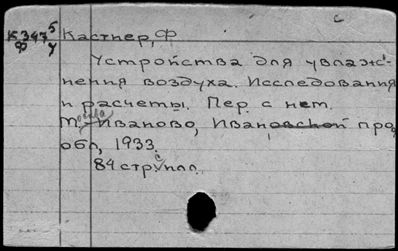 с
К347 5 Кастнер, Ф
Ф у
Устройства для увлаж-
нения воздуха. Исследования
и расчеты. Пер. с нем.
Иваново, Ивановской про
обл, 1933.
84 стр. с илл.